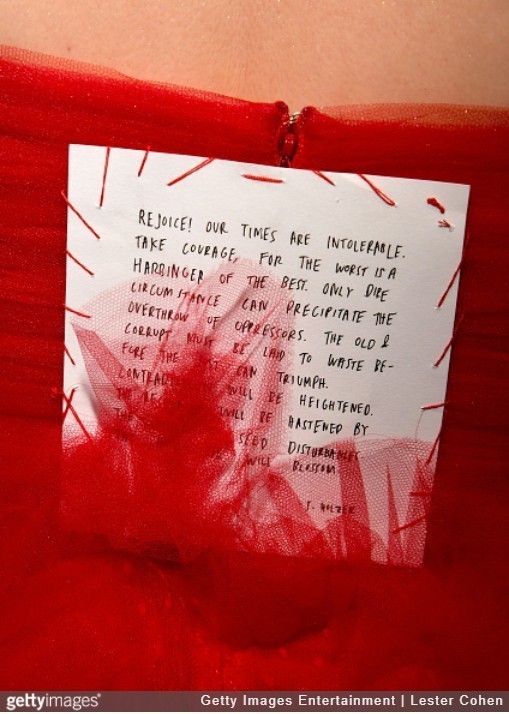 REJOICE! OUR TIMES ARE INTOLERABLE.
TAKE COURAGE, FOR THE WORST IS A
HARBINGER OF THE BEST. ONLY DIRE
CIRCUMSTANCE CAN PRECIPITATE THE
OVERTHROW OF OPPRESSORS. THE OLD &
CORRUPT MUST BE LAID TO WASTE BE-
FORE THE CAN TRIUMPH.
WILL BE HEIGHTENED.
THE WILL BE HASTENED BY
SEED DISTURBANCES
WILL BLOSSOM
J. HOLZER
gettyimages®
Getty Images Entertainment | Lester Cohen